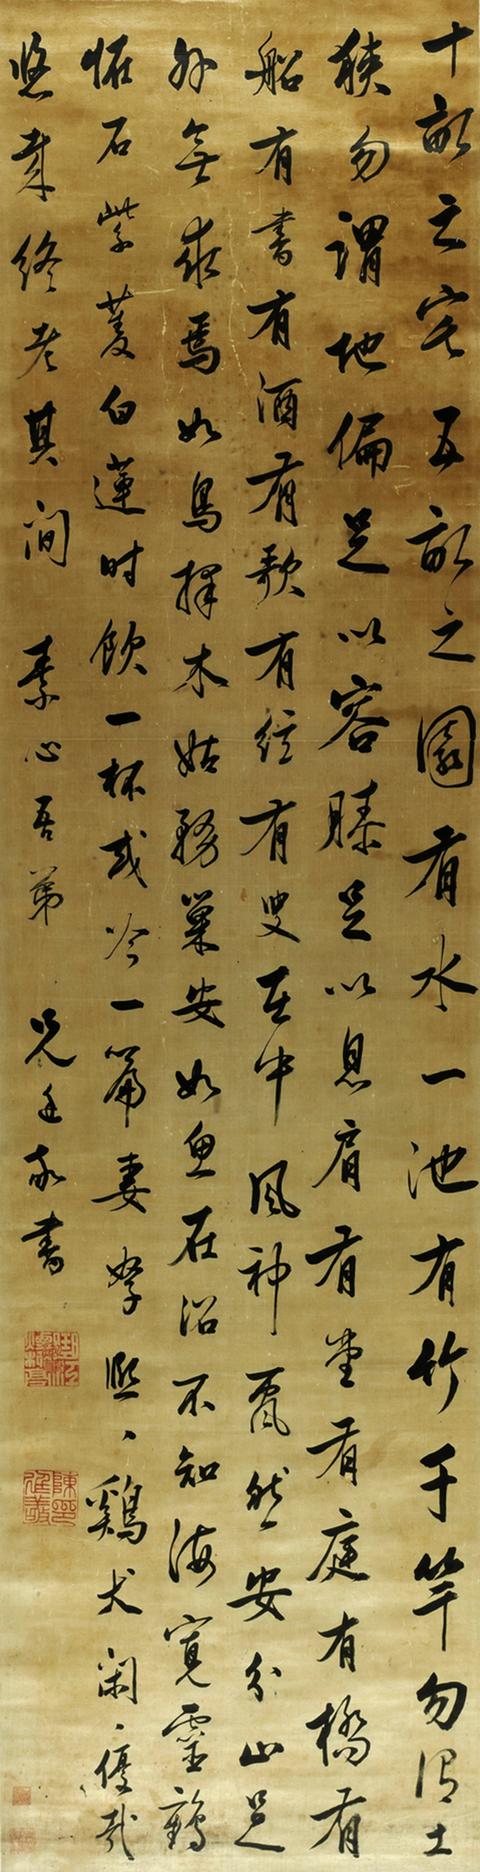 十畝之宅五畝之園有水一池有竹千竿勿謂土
狹勿謂地偏足以容膝足以息肩有堂有庭有橋有
船有書有酒有歌有絃有叟在中風神飄然安分山足
外無求焉如鳥擇木姑務巢安如魚在沼不知海寬靈鶴
怪石紫菱白蓮時飲一杯或吟一篇妻孥熙、鷄犬閑、優哉
悠哉終老其間 素心吾弟 兄廷敬書